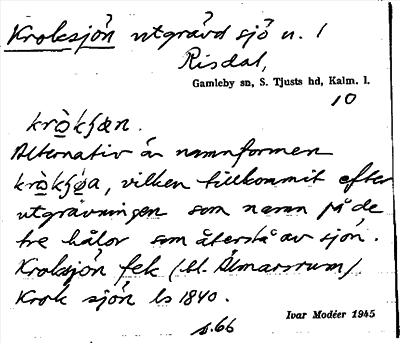 Kroksjön utgrävd sjö n. 1
Risdal,
Gamleby sn, S. Tjusts hd, Kalm. l.
10
krò̱kʃæn.
Alternativ är namnformen
krò̱kʃø̱a, vilken tillkommit efter
utgrävningen som namn på de
tre hålor som återstå av sjön.
Kroksjön fek (bl. Almarsrum).
Krok sjön ls 1840.
Ivar Modéer 1945
s. 66